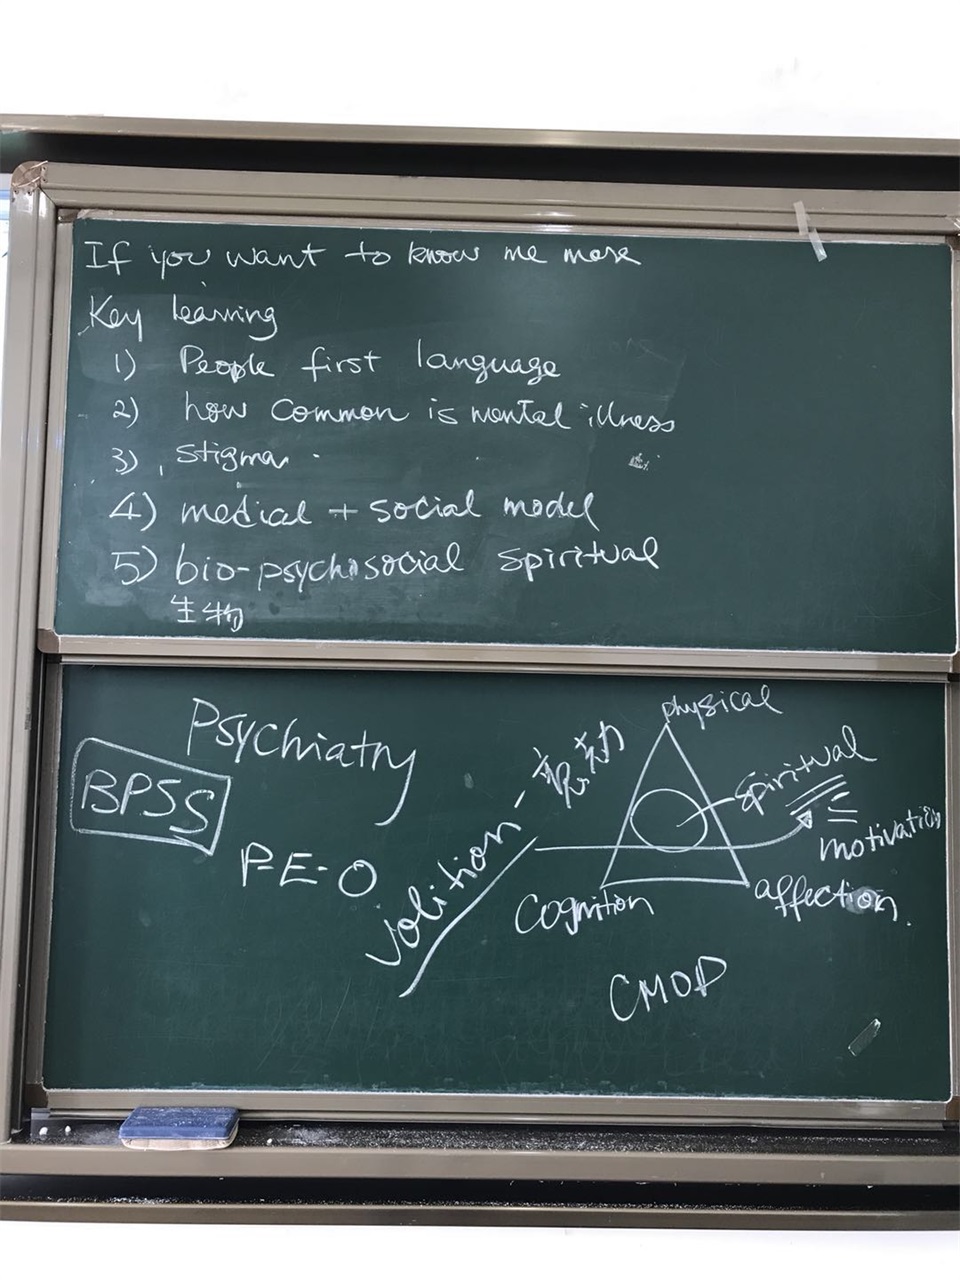 If you want to know me more
Key learning
1) People first language
2) how common is mental illness
3) stigma
4) medial + social model
5) bio-psychosocial spiritual
生物
Psychiatry
BPSS
P-E-O
volition -
physical
spiritual
=
motivation
Cognition
affection.
CMOP